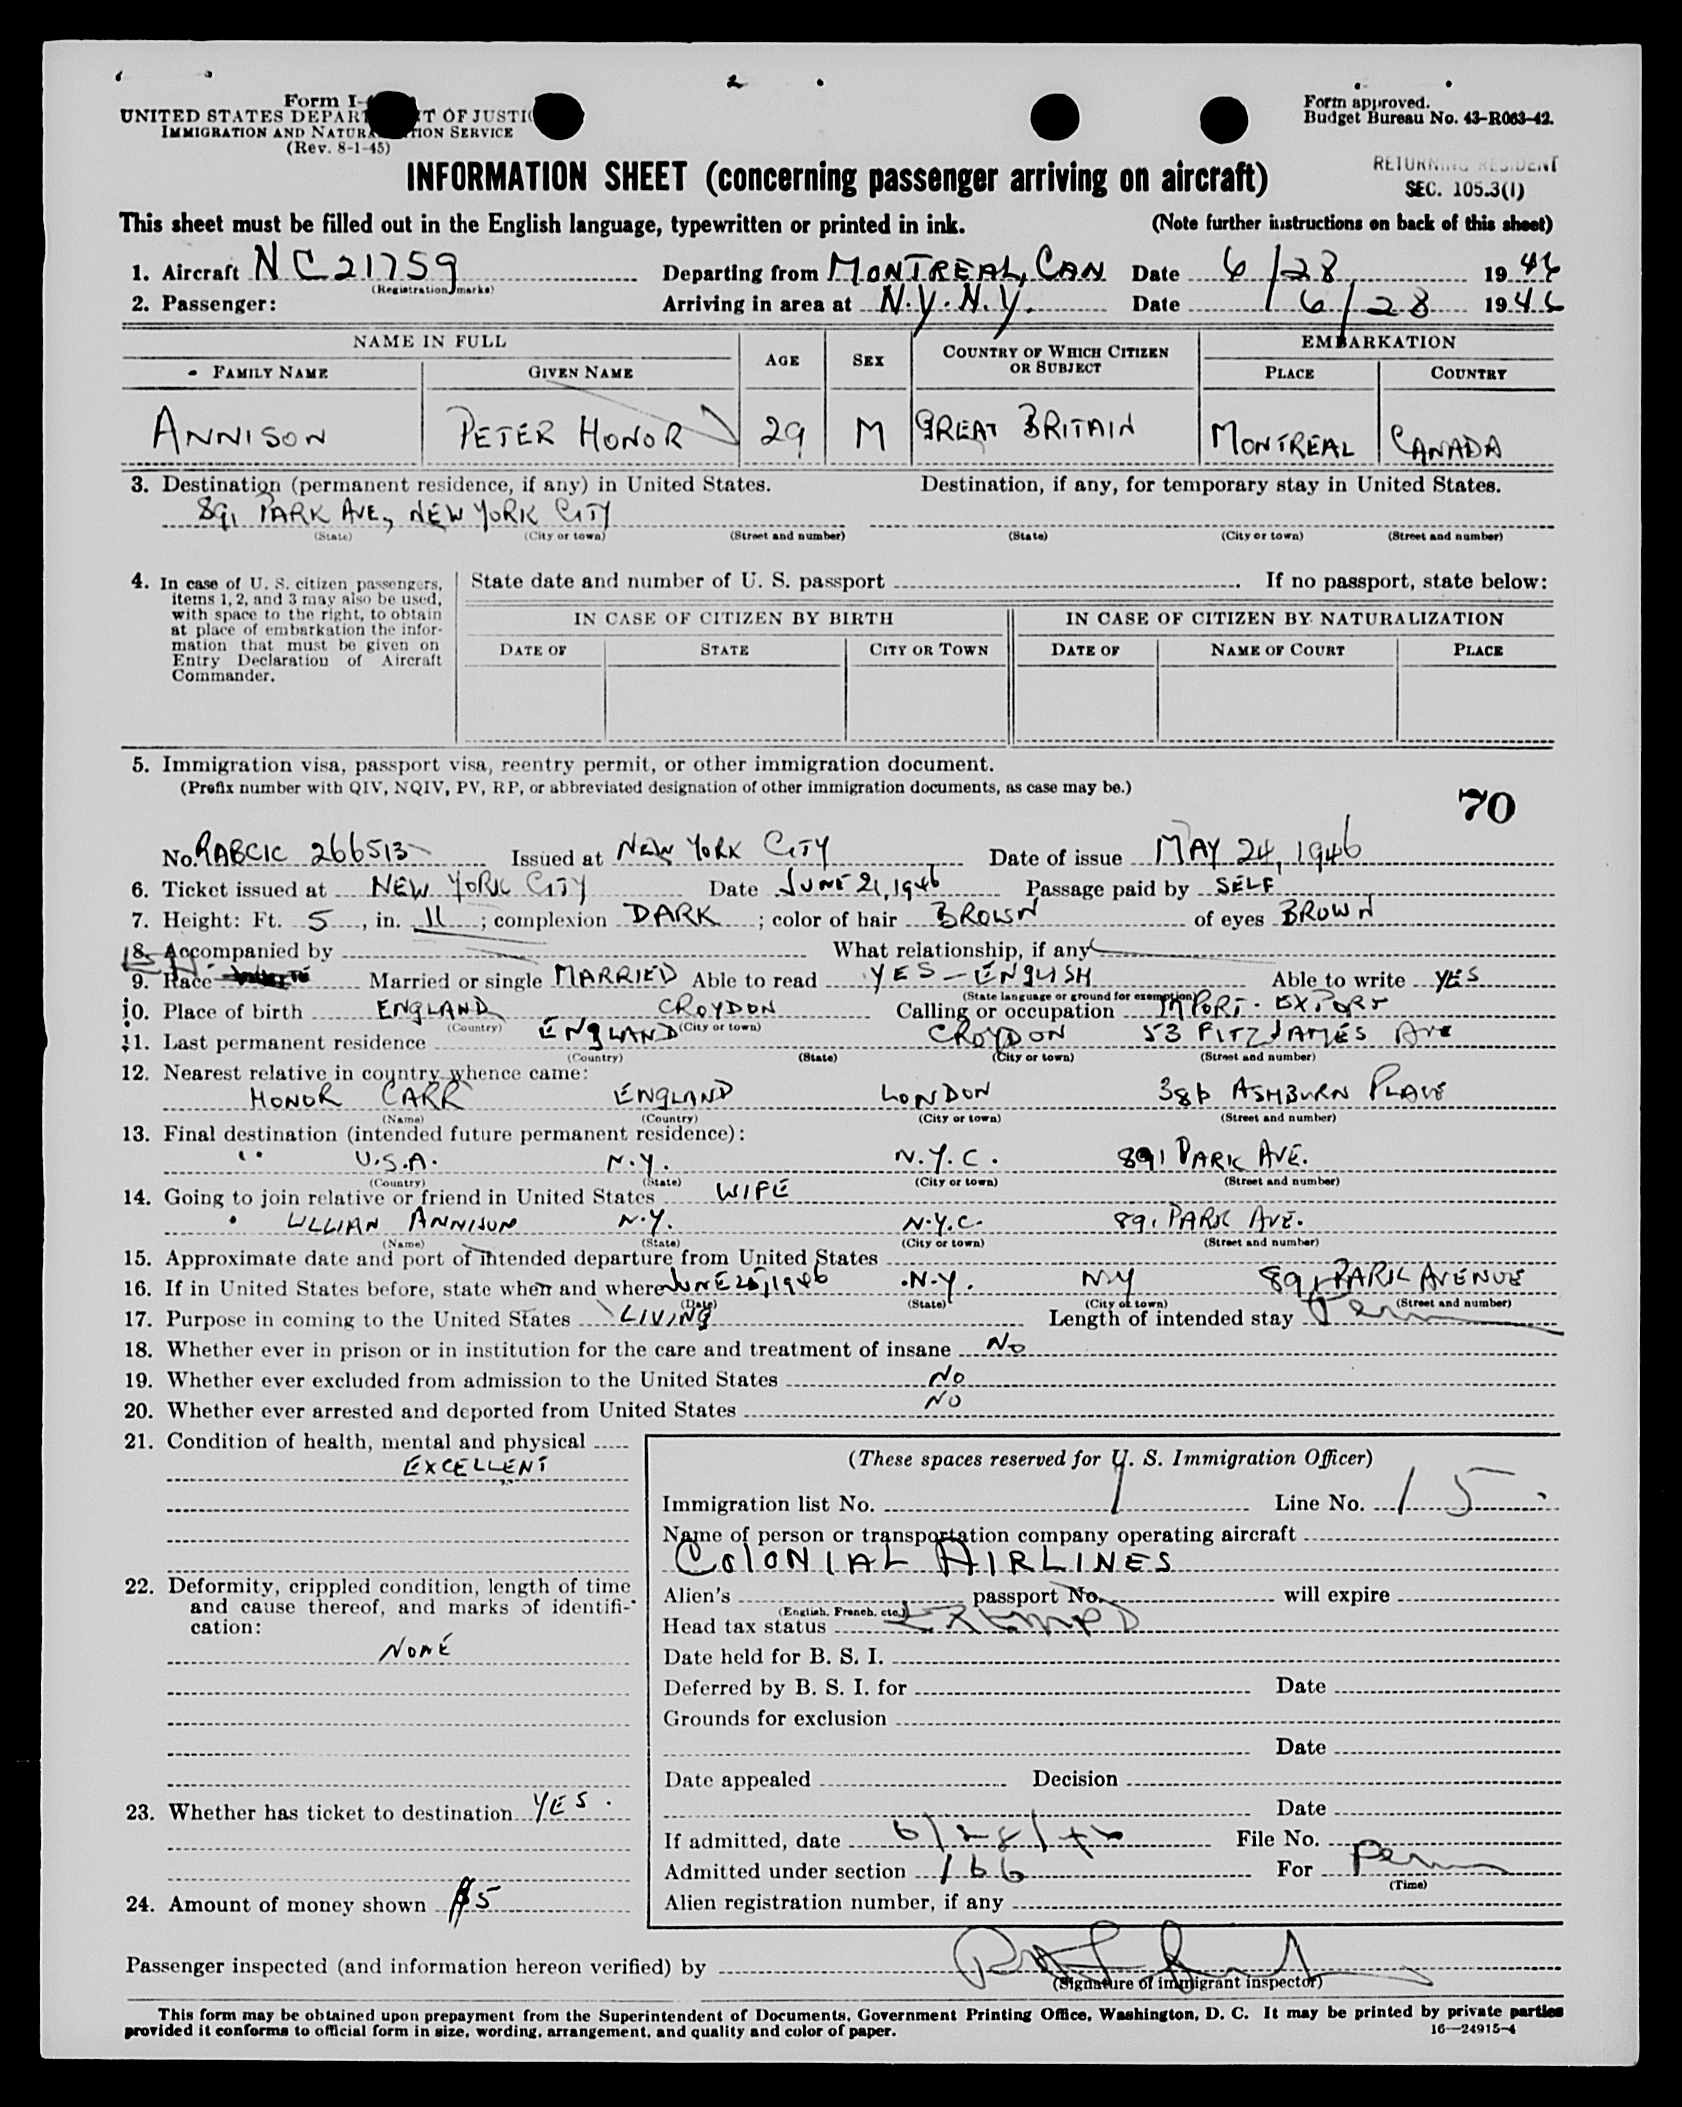 Form I-
UNITED STATES DEPARTMENT OF JUSTICE
IMMIGRATION AND NATURALIZATION SERVICE
(Rev. 8-1-45)
Form approved.
Budget Bureau No. 43-R063-42.
INFORMATION SHEET (concerning passenger arriving on aircraft)
RETURNING RESIDENT
SEC. 105.3(1)
This sheet must be filled out in the English language, typewritten or printed in ink. (Note further instructions on back of this sheet)
1. Aircraft NC21759 Departing from MONTREAL, CAN Date 6/28 1946
(Registration marks)
2. Passenger: Arriving in area at N.Y. N.Y. Date 6/28 1946
NAME IN FULL AGE SEX COUNTRY OF WHICH CITIZEN OR SUBJECT EMBARKATION
FAMILY NAME GIVEN NAME PLACE COUNTRY
ANNISON PETER HONOR 29 M GREAT BRITAIN MONTREAL CANADA
3. Destination (permanent residence, if any) in United States. Destination, if any, for temporary stay in United States.
891 PARK AVE, NEW YORK CITY
(State) (City or town) (Street and number) (State) (City or town) (Street and number)
4. In case of U. S. citizen passengers, items 1, 2, and 3 may also be used, with space to the right, to obtain at place of embarkation the information that must be given on Entry Declaration of Aircraft Commander.
State date and number of U. S. passport . If no passport, state below:
IN CASE OF CITIZEN BY BIRTH IN CASE OF CITIZEN BY NATURALIZATION
DATE OF STATE CITY OR TOWN DATE OF NAME OF COURT PLACE
5. Immigration visa, passport visa, reentry permit, or other immigration document.
(Prefix number with QIV, NQIV, PV, RP, or abbreviated designation of other immigration documents, as case may be.)
70
No. RABCIC 266513 Issued at NEW YORK CITY Date of issue MAY 24, 1946
6. Ticket issued at NEW YORK CITY Date JUNE 21, 1946 Passage paid by SELF
7. Height: Ft. 5, in. 11; complexion DARK; color of hair BROWN of eyes BROWN
8. Accompanied by What relationship, if any
9. Race Married or single MARRIED Able to read YES - ENGLISH Able to write YES
(State language or ground for exemption)
10. Place of birth ENGLAND CROYDON Calling or occupation IMPORT-EXPORT
(Country) (City or town)
11. Last permanent residence ENGLAND CROYDON 53 FITZJAMES AVE
(Country) (State) (City or town) (Street and number)
12. Nearest relative in country whence came:
HONOR CARR ENGLAND LONDON 38b ASHBURN PLACE
(Name) (Country) (City or town) (Street and number)
13. Final destination (intended future permanent residence):
U.S.A. N.Y. N.Y.C. 891 PARK AVE.
(Country) (State) (City or town) (Street and number)
14. Going to join relative or friend in United States WIFE
LILLIAN ANNISON N.Y. N.Y.C. 891 PARK AVE.
(Name) (State) (City or town) (Street and number)
15. Approximate date and port of intended departure from United States
16. If in United States before, state when and where JUNE 25, 1946 N.Y. NY 891 PARK AVENUE
(Date) (State) (City or town) (Street and number)
17. Purpose in coming to the United States LIVING Length of intended stay Perm
18. Whether ever in prison or in institution for the care and treatment of insane NO
19. Whether ever excluded from admission to the United States NO
20. Whether ever arrested and deported from United States NO
21. Condition of health, mental and physical
EXCELLENT
22. Deformity, crippled condition, length of time and cause thereof, and marks of identification:
NONE
23. Whether has ticket to destination YES.
24. Amount of money shown $5
(These spaces reserved for U. S. Immigration Officer)
Immigration list No. 1 Line No. 15
Name of person or transportation company operating aircraft
COLONIAL AIRLINES
Alien's passport No. will expire
(English, French, etc.)
Head tax status EXEMPD
Date held for B. S. I.
Deferred by B. S. I. for Date
Grounds for exclusion
Date
Date appealed Decision
Date
If admitted, date 6/28/46 File No.
Admitted under section 166 For Perm
(Time)
Alien registration number, if any
Passenger inspected (and information hereon verified) by
(Signature of immigrant inspector)
This form may be obtained upon prepayment from the Superintendent of Documents, Government Printing Office, Washington, D. C. It may be printed by private parties
provided it conforms to official form in size, wording, arrangement, and quality and color of paper. 16—24915-4